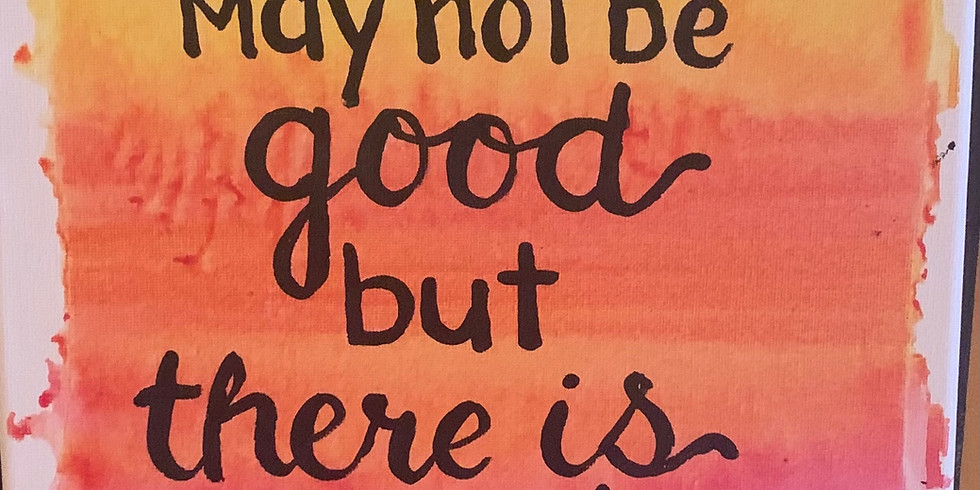 May not be
good
but
there is